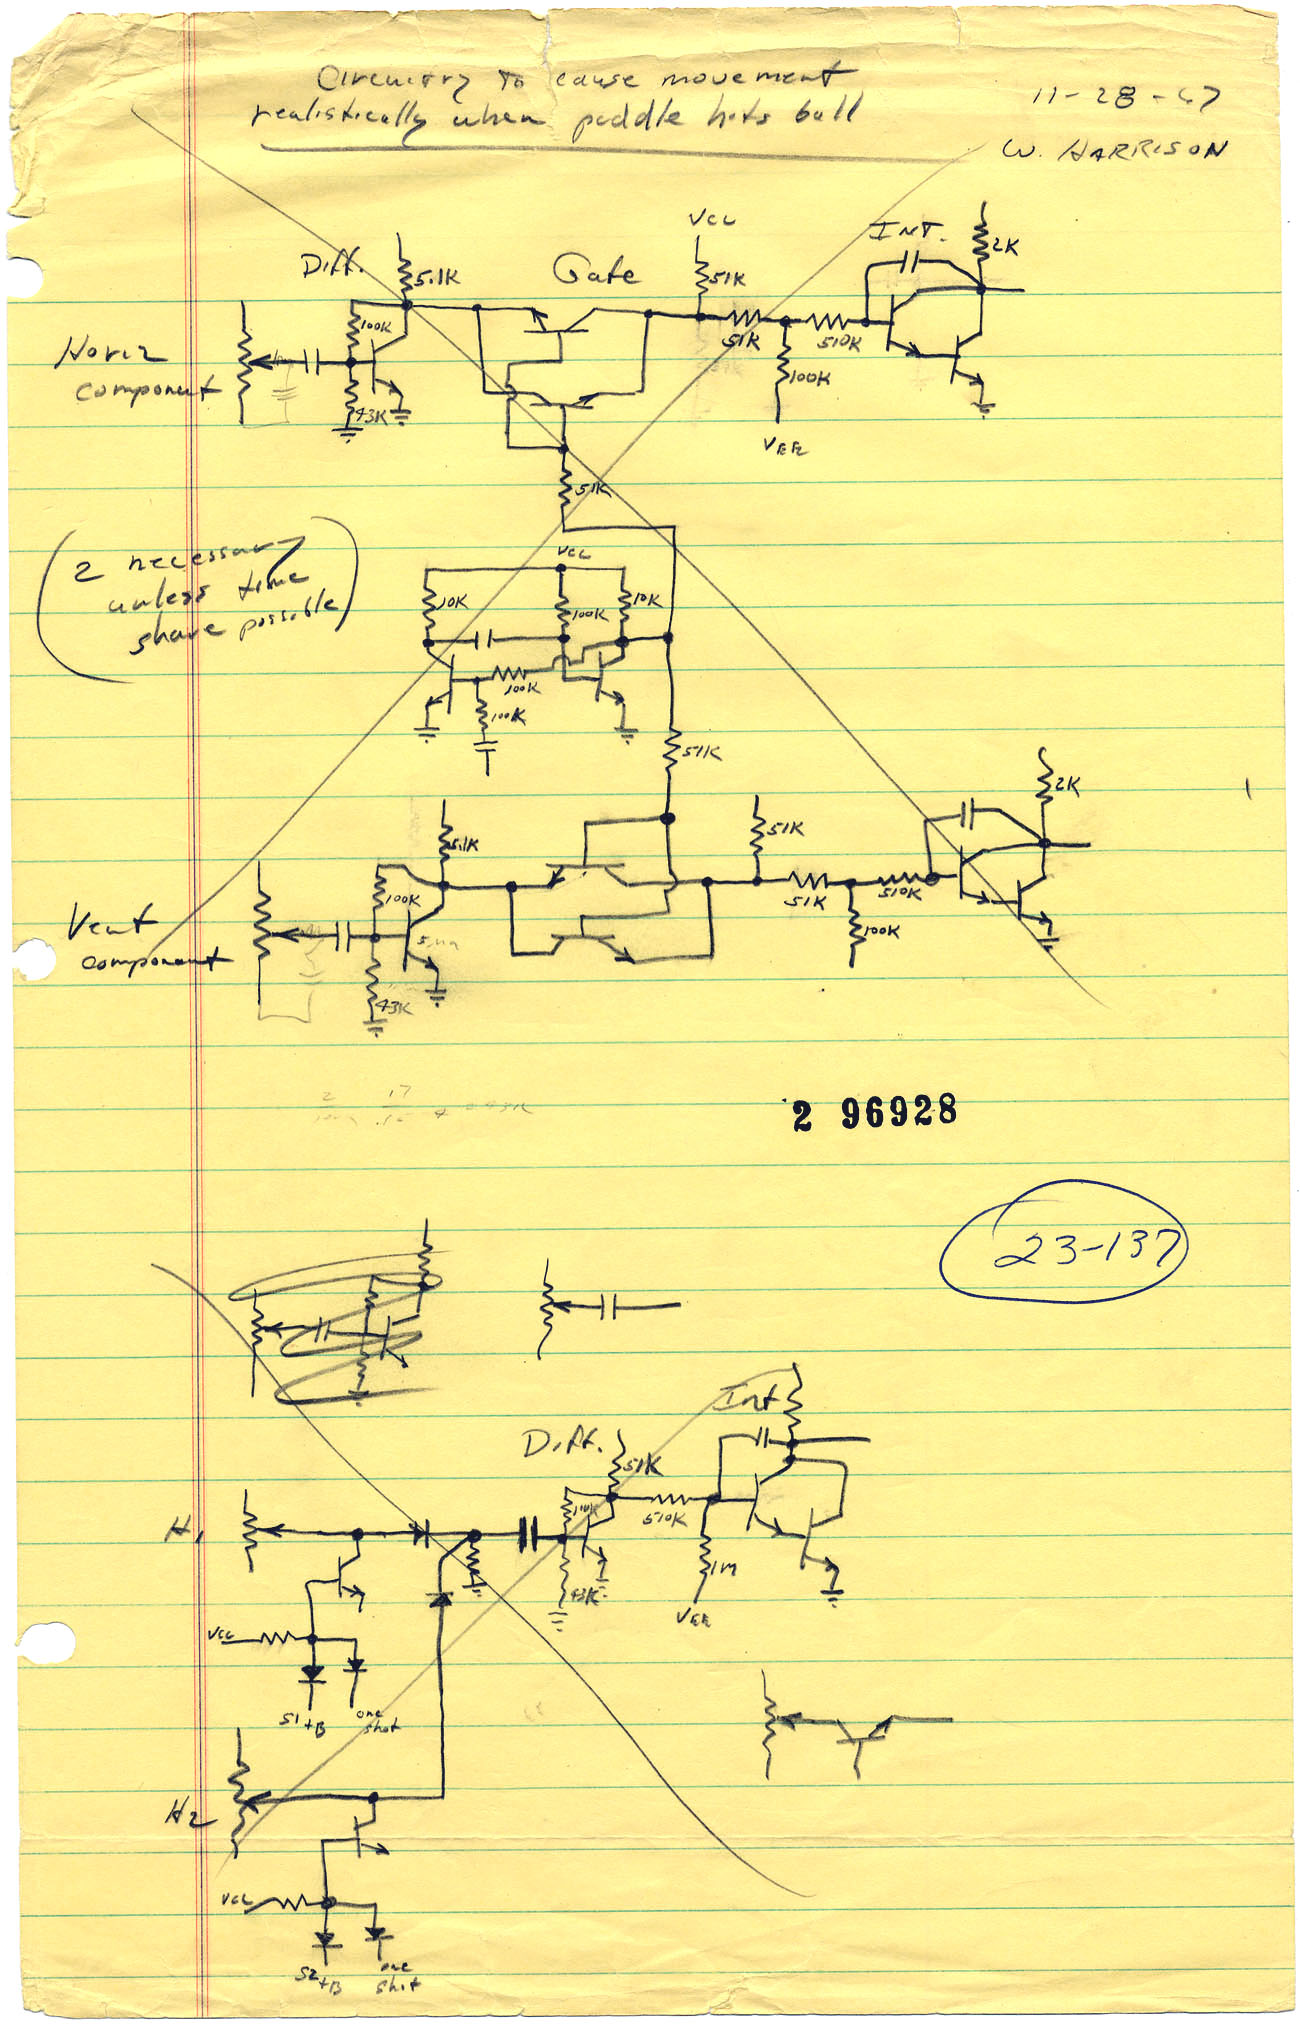 Circuitry to cause movement
realistically when paddle hits ball
11-28-67
W. HARRISON
VCC
INT.
2K
Diff.
5.1K
Gate
51K
100K
51K
510K
Horiz
component
100K
43K
VEE
51K
(2 necessary
unless time
share possible)
VCC
10K
100K
10K
100K
100K
51K
2K
5.1K
51K
100K
51K
510K
Vert
component
100K
43K
2 96928
23-137
Int
Diff.
51K
100K
510K
H1
1M
43K
VEE
VCC
S1+B
one
shot
H2
VCC
S2+B
one
shot